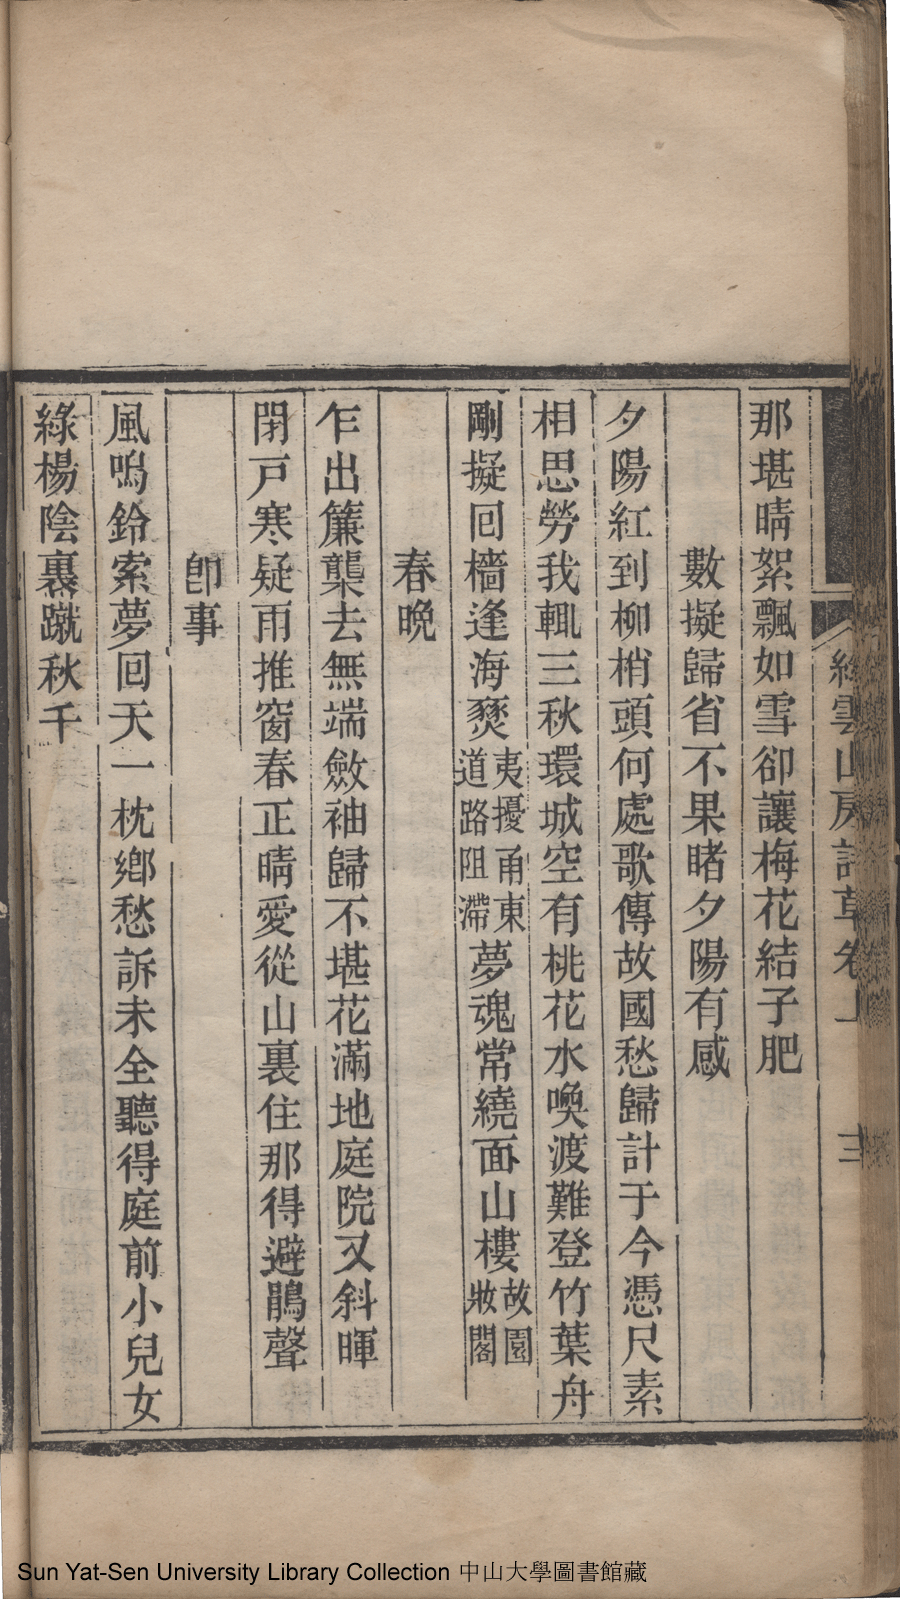 雲山房詩草卷上 三
那堪晴絮飄如雪卻讓梅花結子肥
數擬歸省不果睹夕陽有感
夕陽紅到柳梢頭何處歌傳故國愁歸計于今憑尺素
相思勞我輒三秋環城空有桃花水喚渡難登竹葉舟
剛擬回檣逢海燹夷擾甬東道路阻滯夢魂常繞面山樓故園妝閣
春晚
乍出簾櫳去無端斂袖歸不堪花滿地庭院又斜暉
閉戸寒疑雨推窗春正晴愛從山裏住那得避鵑聲
卽事
風嗚鈴索夢回天一枕鄉愁訴未全聽得庭前小兒女
綠楊陰裏蹴秋千
Sun Yat-Sen University Library Collection 中山大學圖書館藏